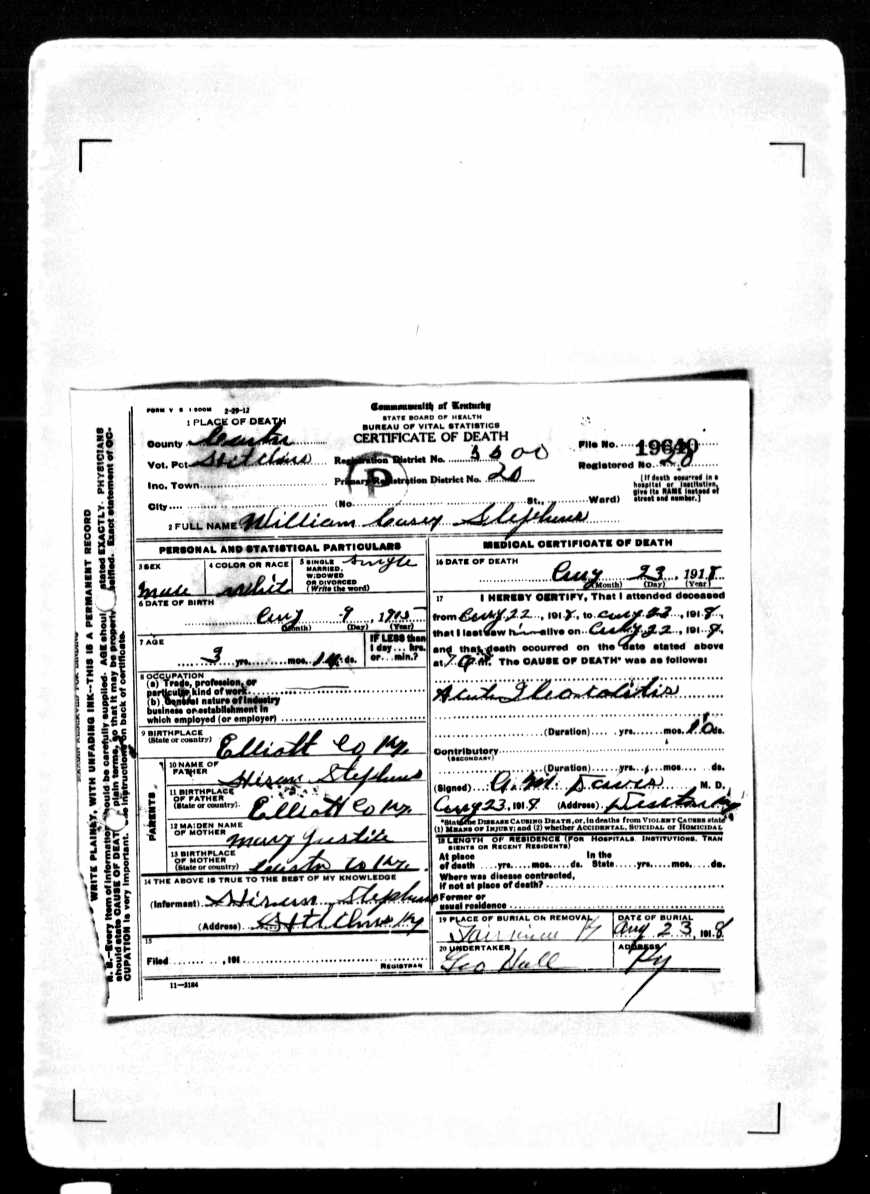 FORM V S 1 500M 2-29-12
Commonwealth of Kentucky
STATE BOARD OF HEALTH
BUREAU OF VITAL STATISTICS
CERTIFICATE OF DEATH
1 PLACE OF DEATH
County Carter
Vot. Pct.
Inc. Town
City
Registration District No.
Primary Registration District No. 20
(No. St., Ward)
File No. 19640
Registered No. 20
(If death occurred in a hospital or institution, give its NAME instead of street and number.)
P
2 FULL NAME William Casey Stephens
PERSONAL AND STATISTICAL PARTICULARS
3 SEX
Male
4 COLOR OR RACE
White
5 SINGLE, MARRIED, WIDOWED OR DIVORCED (Write the word)
Single
6 DATE OF BIRTH
Aug 9, 19
(Month) (Day) (Year)
7 AGE
3 yrs. mos. 14 ds.
IF LESS than 1 day... hrs. or... min.?
8 OCCUPATION
(a) Trade, profession, or particular kind of work
(b) General nature of industry business or establishment in which employed (or employer)
9 BIRTHPLACE
(State or country) Elliott Co Ky.
PARENTS
10 NAME OF FATHER Hiram Stephens
11 BIRTHPLACE OF FATHER
(State or country) Elliott Co Ky.
12 MAIDEN NAME OF MOTHER Mary Justice
13 BIRTHPLACE OF MOTHER
(State or country) Carter Co Ky.
14 THE ABOVE IS TRUE TO THE BEST OF MY KNOWLEDGE
(Informant) Hiram Stephens
(Address) Ky
15
Filed , 191
REGISTRAR
11—3184
MEDICAL CERTIFICATE OF DEATH
16 DATE OF DEATH
Aug 23, 1918
(Month) (Day) (Year)
17 I HEREBY CERTIFY, That I attended deceased
from Aug 22, 1918, to Aug 23, 1918,
that I last saw him alive on Aug 22, 1918,
and that death occurred on the date stated above
at 7 M. The CAUSE OF DEATH* was as follows:
Acute Ileocolitis
(Duration) yrs. mos. 10 ds.
Contributory
(SECONDARY)
(Duration) yrs. mos. ds.
(Signed) M. D.
Aug 23, 1918 (Address) Ky
*State the DISEASE CAUSING DEATH, or, in deaths from VIOLENT CAUSES state (1) MEANS OF INJURY; and (2) whether ACCIDENTAL, SUICIDAL or HOMICIDAL
18 LENGTH OF RESIDENCE (FOR HOSPITALS, INSTITUTIONS, TRANSIENTS OR RECENT RESIDENTS)
At place of death yrs. mos. ds. In the State yrs. mos. ds.
Where was disease contracted,
if not at place of death?
Former or
usual residence
19 PLACE OF BURIAL OR REMOVAL
Ky
DATE OF BURIAL
Aug 23, 1918
20 UNDERTAKER
Geo Hall
ADDRESS
Ky
WRITE PLAINLY, WITH UNFADING INK--THIS IS A PERMANENT RECORD